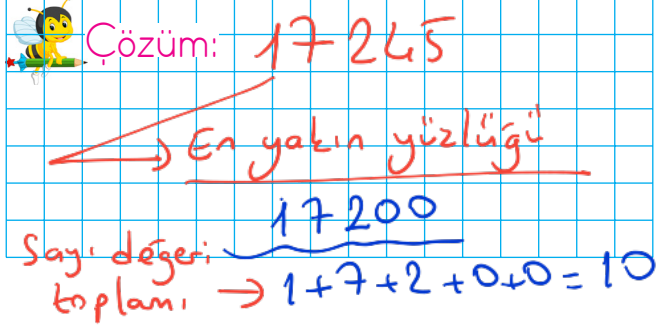 Çözüm: 17245
→ En yakın yüzlüğü
17200
Sayı değeri
toplamı → 1+7+2+0+0=10